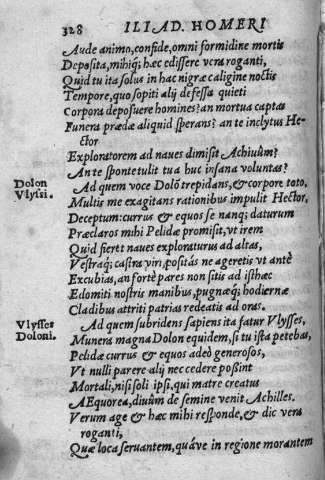 328 ILIAD. HOMERI
Aude animo, confide, omni formidine mortis
Deposita, mihiq; hæc edissere vera roganti,
Quid tu ita solus in hac nigræ caligine noctis
Tempore, quo sopiti alij defessa quieti
Corpora deposuere homines? an mortua captas
Funera prædæ aliquid sperans? an te inclytus He-
ctor
Exploratorem ad naues dimisit Achiuûm?
An te spontetulit tua huc insana voluntas?
Dolon
Vlyssi.
Ad quem voce Dolō trepidans, & corpore toto,
Multis me exagitans rationibus impulit Hector,
Deceptum: currus & equos se nanq; daturum
Præclaros mihi Pelidæ promisit, vt irem
Quid fieret naues exploraturus ad altas,
Vestraq; castra viri, positás ne ageretis vt antè
Excubias, an fortè pares non sitis ad isthæc
Edomiti nostris manibus, pugnæq; hodiernæ
Cladibus attriti patrias redeatis ad oras.
Vlysses
Doloni.
Ad quem subridens sapiens ita fatur Vlysses,
Munera magna Dolon equidem, si tu ista petebas,
Pelidæ currus & equos adeò generosos,
Vt nulli parere alij nec cedere poßint
Mortali, nisi soli ipsi, qui matre creatus
AEquorea, diuûm de semine venit Achilles.
Verum age & hæc mihi responde, & dic vera
roganti,
Quæ loca seruantem, quáve in regione morantem